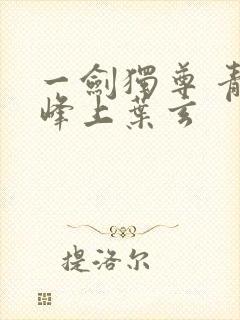 一劍獨尊 青
峰上葉玄
提洛尔